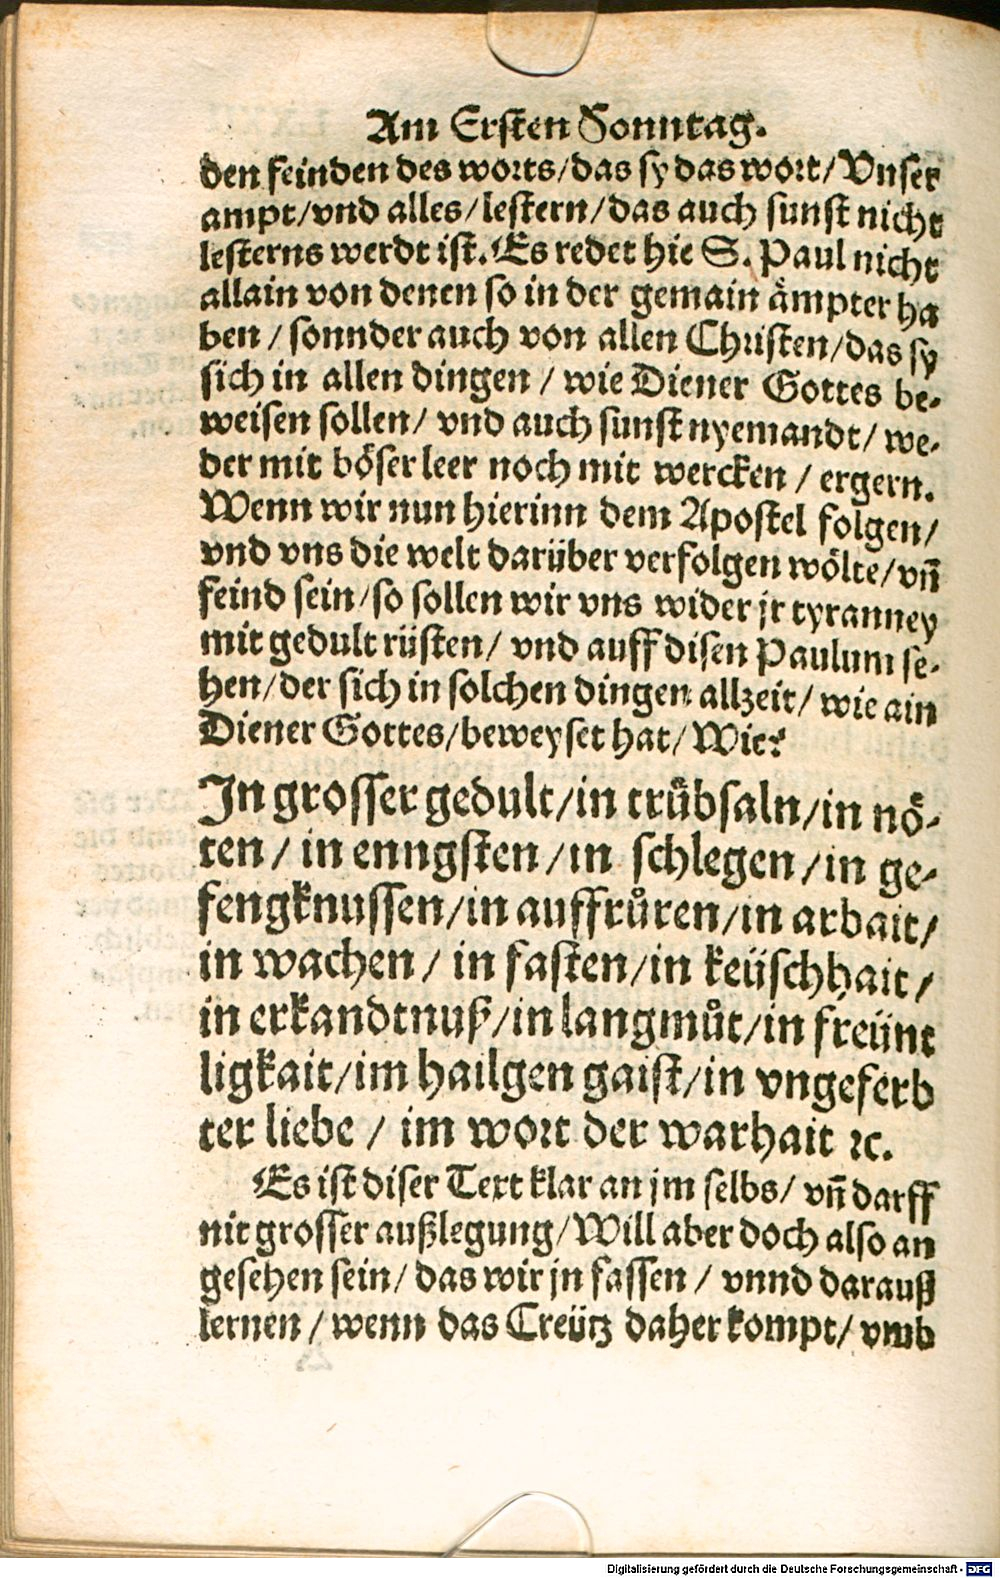 Am Ersten Sonntag.
den feinden des worts/das sy das wort/Vnser
ampt/vnd alles/lestern/das auch sunst nicht
lesterns werdt ist. Es redet hie S. Paul nicht
allain von denen so in der gemain ämpter ha
ben / sonnder auch von allen Christen/das sy
sich in allen dingen / wie Diener Gottes be-
weisen sollen/ vnd auch sunst nyemandt/ we-
der mit böser leer noch mit wercken / ergern.
Wenn wir nun hierinn dem Apostel folgen/
vnd vns die welt darüber verfolgen wölte/vn̄
feind sein/so sollen wir vns wider jr tyranney
mit gedult rüsten/ vnd auff disen Paulum se-
hen/der sich in solchen dingen allzeit/ wie ain
Diener Gottes/beweyset hat/ Wie?
In grosser gedult/in trübsaln/in nö-
ten / in enngsten /in schlegen /in ge-
fengknussen/in auffrůren/in arbait/
in wachen / in fasten/in keüschhait /
in erkandtnuß/in langmůt/in freünt
ligkait/im hailgen gaist/in vngeferb
ter liebe / im wort der warhait ꝛc.
Es ist diser Text klar an jm selbs/ vn̄ darff
nit grosser außlegung/Will aber doch also an
gesehen sein/ das wir jn fassen / vnnd darauß
lernen / wenn das Creütz daher kompt/ vmb
Digitalisierung gefördert durch die Deutsche Forschungsgemeinschaft - DFG